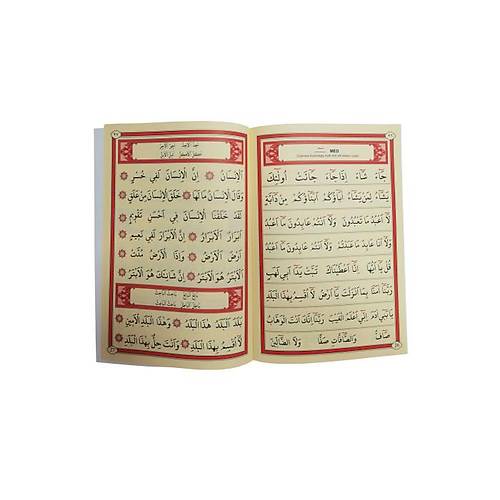 MED
جَٓاءَ شَٓاءَ اِذَا جَٓاءَ جَٓائَتْ اُولٰٓئِكَ
يَشَٓاءُ لِمَنْ يَشَٓاءُ اٰبَٓاؤُكُمْ اَبْنَٓاؤُكُمْ مِنْ دَٓابَّةٍ
لَٓا اَعْبُدُ مَا تَعْبُدُونَ وَلَٓا اَنْتُمْ عَابِدُونَ مَٓا اَعْبُدُ
وَلَٓا اَنَا عَابِدٌ مَا عَبَدْتُمْ وَلَٓا اَنْتُمْ عَابِدُونَ
قُلْ يَٓا اَيُّهَا اِنَّٓا اَعْطَيْنَاكَ تَبَّتْ يَدَٓا اَبِي لَهَبٍ
رَبَّنَٓا اٰمَنَّا بِمَٓا اَنْزَلْتَ يَٓا اَرْضُ لَٓا اُقْسِمُ بِهٰذَا الْبَلَدِ
يَا بَنِٓي اٰدَمَ اِنِّٓي اَعْلَمُ الْغَيْبَ رَبَّنَٓا اِنَّكَ اَنْتَ الْوَهَّابُ
صَٓافٌّ وَالصَّٓافَّاتِ صَفًّا وَلَا الضَّٓالِّينَ
اَلْاِنْسَانُ اِنَّ الْاِنْسَانَ لَفِي خُسْرٍ
وَقَالَ الْاِنْسَانُ مَا لَهَا خَلَقَ الْاِنْسَانَ مِنْ عَلَقٍ
لَقَدْ خَلَقْنَا الْاِنْسَانَ فِي اَحْسَنِ تَقْوِيمٍ
اَبْرَارٌ اَلْاَبْرَارُ اِنَّ الْاَبْرَارَ لَفِي نَعِيمٍ
اَرْضٌ اَلْاَرْضُ وَاِذَا الْاَرْضُ مُدَّتْ
اَلْاَبْتَرُ هُوَ الْاَبْتَرُ اِنَّ شَانِئَكَ هُوَ الْاَبْتَرُ
بَلَدٌ اَلْبَلَدُ هٰذَا الْبَلَدُ وَهٰذَا الْبَلَدِ الْاَمِينِ
لَٓا اُقْسِمُ بِهٰذَا الْبَلَدِ وَاَنْتَ حِلٌّ بِهٰذَا الْبَلَدِ